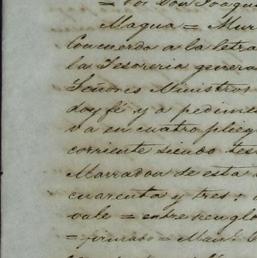 = Por Don Joaqu
Magua = Mur
Concuerda a la letra
la Tesoreria genera
Señores Ministros
doy fé y a pedime
va en cuatro plieg
corriente siendo tes
Marradon de esta
cuarenta y tres:
vale = entre renglo